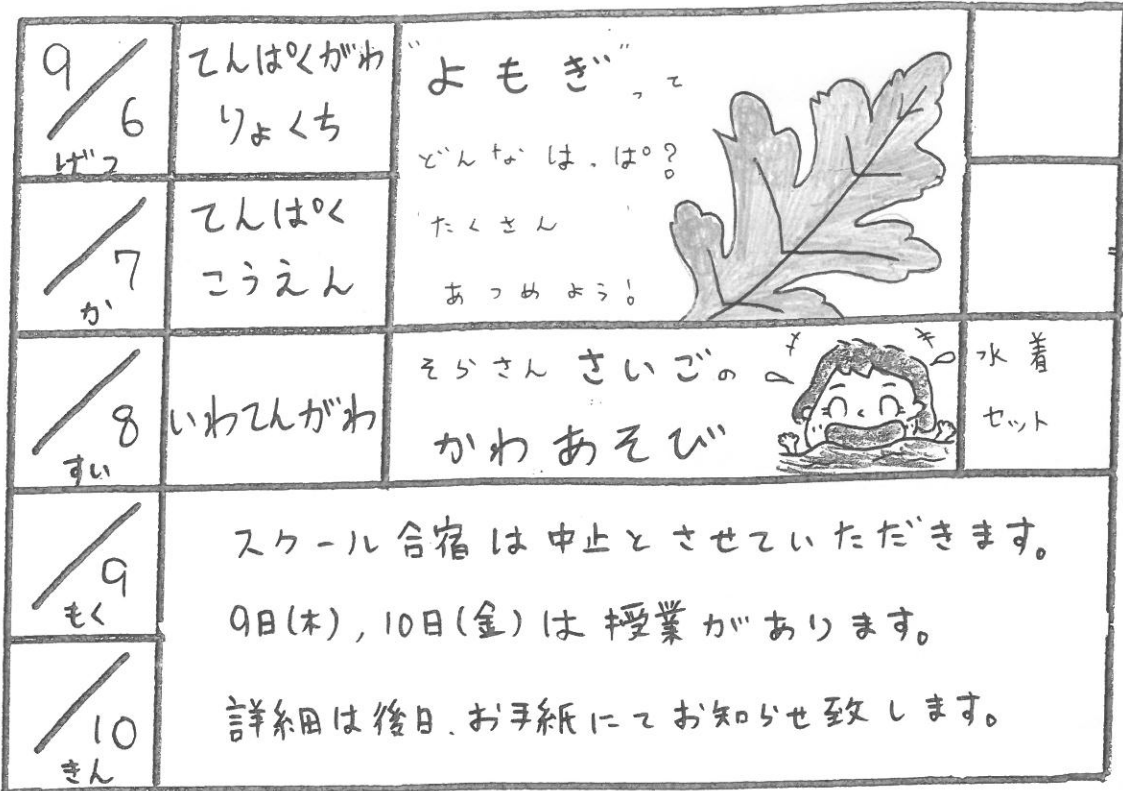 9/6
げつ
てんぱくがわ
りょくち
"よもぎ"って
どんなはっぱ?
たくさん
あつめよう!
/7
か
てんぱく
こうえん
/8
すい
いわてんがわ
そらさん さいごの
かわあそび
水着
セット
/9
もく
/10
きん
スクール合宿は中止とさせていただきます。
9日(木),10日(金)は授業があります。
詳細は後日、お手紙にてお知らせ致します。